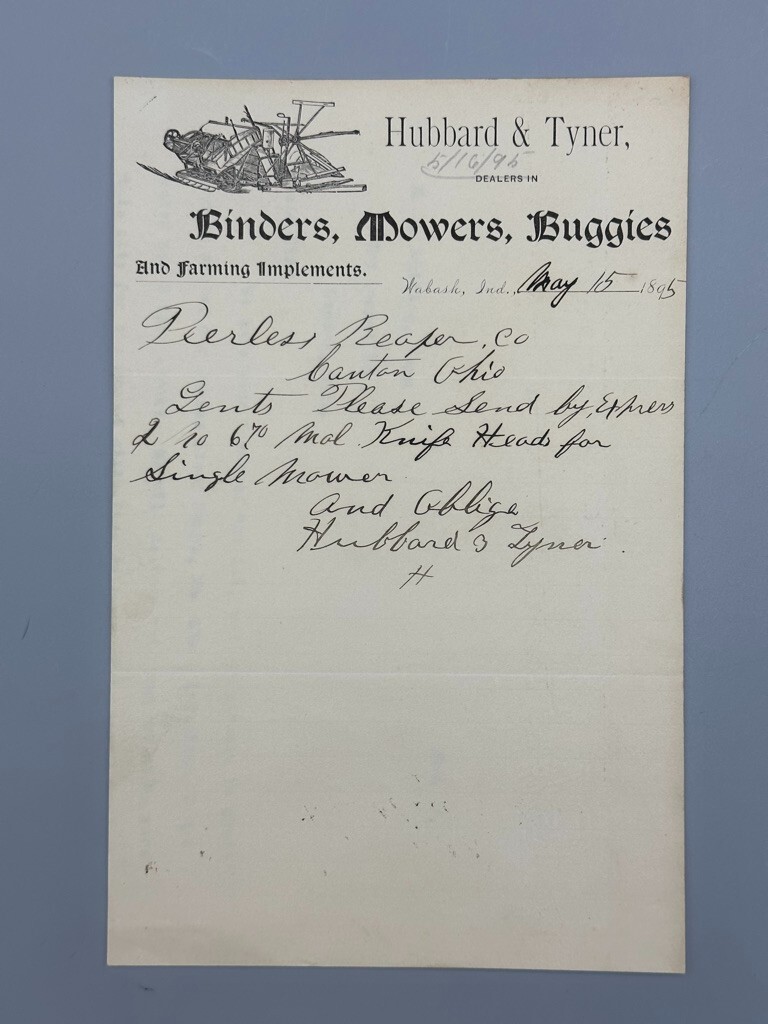 Hubbard & Tyner,
5/16/95
DEALERS IN
Binders, Mowers, Buggies
And Farming Implements.
Wabash, Ind., May 15 1895
Peerless Reaper, Co
Canton Ohio
Gents Please Send by, Express
2 No 670 Mal Knife Heads for
Single Mower
and Oblige
Hubbard & Tyner.
H